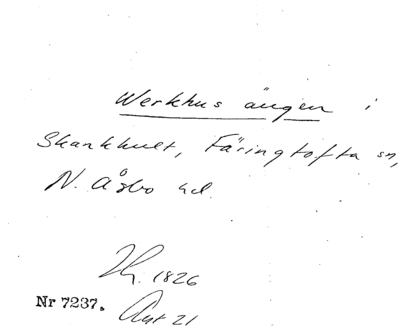 Werkhus ängen i
Skankhult, Färingtofta sn,
N. Åsbo hd.
1826
Nr 7237.
21